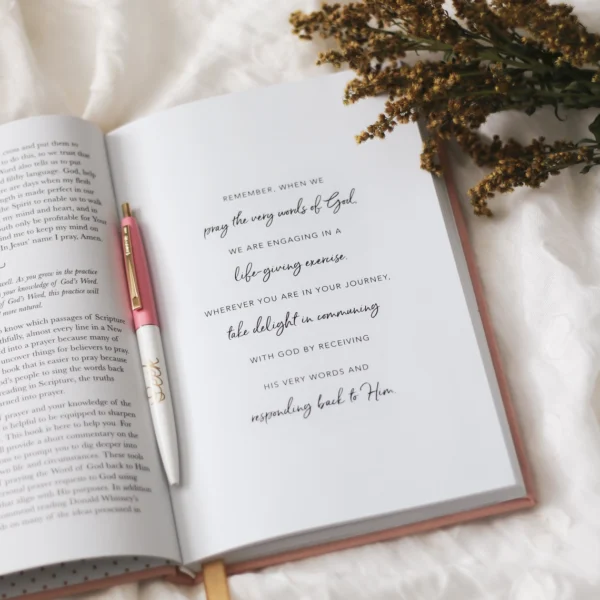 rooms and put them to
to do this, so we trust that
Word also tells us to put
filthy language. God, help
are days when my flesh
strength is made perfect in our
the Spirit to enable us to walk
my mind and heart, and in
mouth only be profitable for Your
remind me to keep my mouth on
In Jesus' name I pray, Amen.
well. As you grow in the practice
your knowledge of God's Word.
of God's Word, this practice will
more natural.
know which passages of Scripture
faithfully, almost every line in a New
into a prayer because many of
uncover things for believers to pray.
book that is easier to pray because
God's people to sing the words back
reading in Scripture, the truths
turned into prayer.
prayer and your knowledge of the
is helpful to be equipped to sharpen
This book is here to help you. For
provide a short commentary on the
to prompt you to dig deeper into
life and circumstances. These tools
praying the Word of God back to Him
personal prayer requests to God using
that align with His purposes. In addition
recommend reading Donald Whitney's
on many of the ideas promised in
REMEMBER, WHEN WE
pray the very words of God,
WE ARE ENGAGING IN A
life-giving exercise.
WHEREVER YOU ARE IN YOUR JOURNEY,
take delight in communing
WITH GOD BY RECEIVING
HIS VERY WORDS AND
responding back to Him.